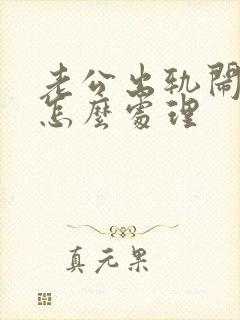 老公出轨闹
怎麼處理
真元果